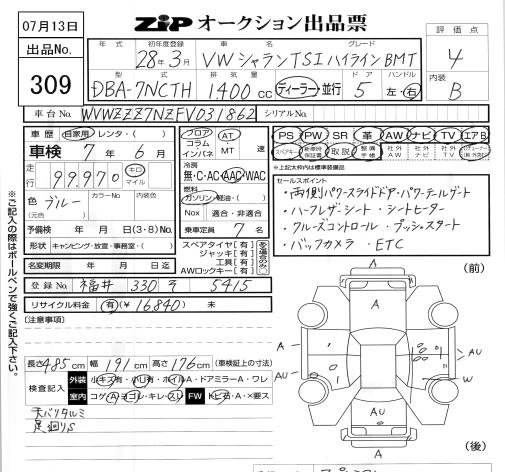 07月13日
ZiP オークション出品票
出品No.
309
年式 初年度登録 車名 グレード
28年3月 VWシャランTSIハイラインBMT
型式 排気量 ドア ハンドル
DBA-7NCTH 1400cc ディーラー・並行 5 左・右
評価点
4
内装
B
車台No. WVWZZZ7NZFV031862 シリアルNo.
車歴 自家用・レンタ・( )
車検 7年6月
走行 99,970 キロ マイル
色 ブルー カラーNo 内装色
(元色)
予備検 年 月 日(3・8)No.
形状 キャンピング・放宣・事務室・( )
名変期限 年 月 日迄
フロア コラム インパネ AT MT 速
冷房
無・C・AC・AAC・WAC
燃料
ガソリン・軽油・( )
Nox 適合・非適合
乗車定員 7名
スペアタイヤ[有]
ジャッキ[有]
工具[有]
AWロックキー[有]
PS PW SR 革 AW ナビ TV エアB
スペアキー 新車時保証書 取説 整備手帳 社外AW 社外ナビ 社外TV
※上記太枠内は標準装備品
セールスポイント
・両側パワースライドドア・パワーテールゲート
・ハーフレザーシート・シートヒーター
・クルーズコントロール・プッシュスタート
・バックカメラ ・ETC
登録No. 福井 330 そ 5415
リサイクル料金 有(¥16,840) 未
(注意事項)
長さ485cm 幅191cm 高さ176cm (車検証上の寸法)
検査記入 外装 小キズ有・小凹有・ホイルA・ドアミラーA・ワレ
室内 コゲ・A・ヨゴレ・キレ・スレ FW トビ石・A・×要ス
天バリタルミ
足廻りS
(前)
A
A
A
A
AU
AU
AU
W
A
A
(後)
※ご記入の際はボールペンで強くご記入下さい。